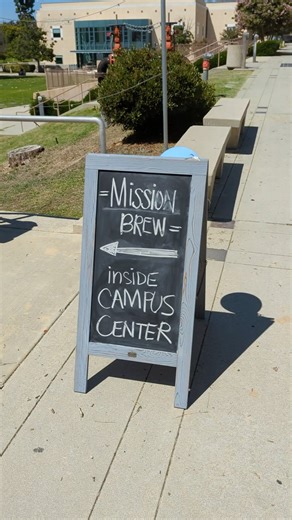 =MISSION
BREW=
inSIDE
CAMPUS
CENTER